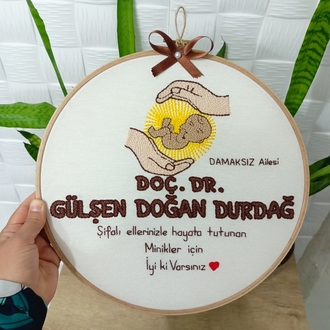 DAMAKSIZ Ailesi
DOÇ. DR.
GÜLŞEN DOĞAN DURDAĞ
Şifalı ellerinizle hayata tutunan
Minikler için
İyi ki Varsınız